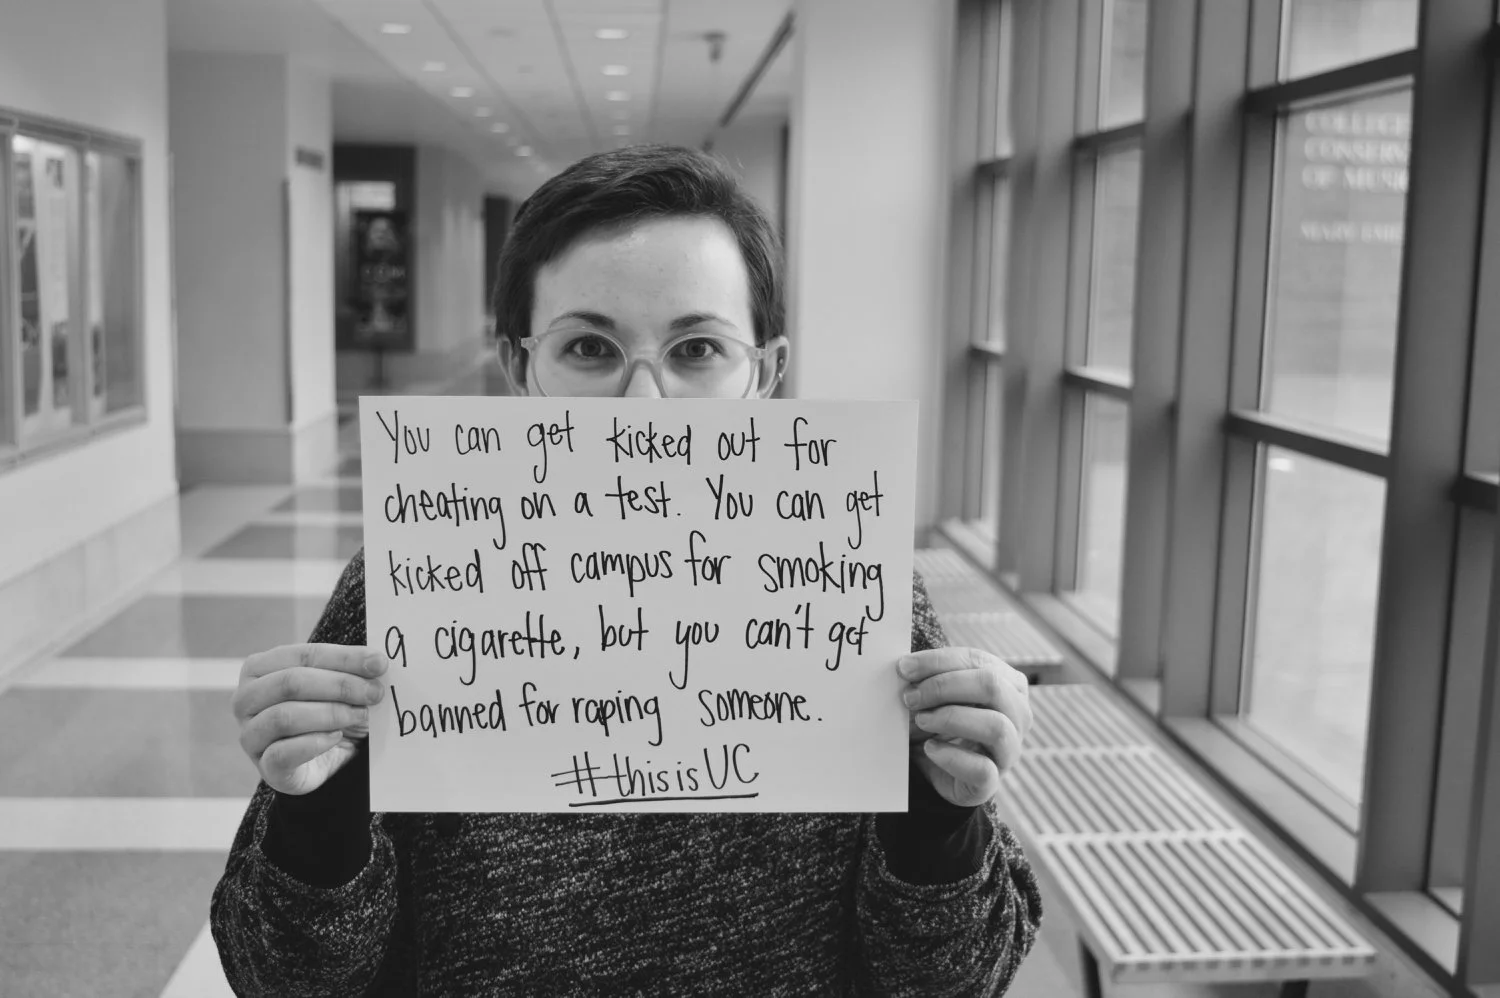 You can get kicked out for
cheating on a test. You can get
kicked off campus for smoking
a cigarette, but you can't get
banned for raping someone.
#thisisUC
COLLEGE
CONSERV
OF MUSIC
MARY EMERY